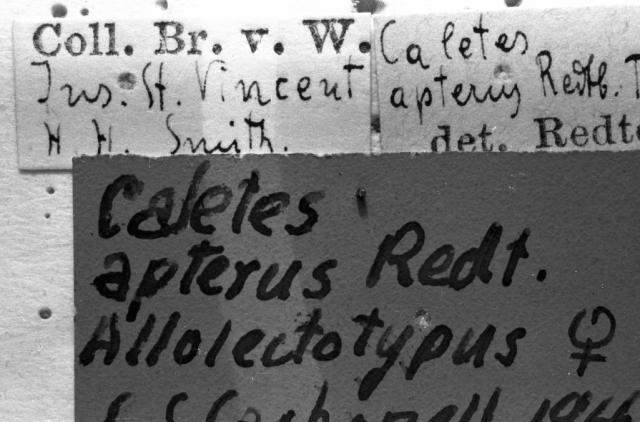 Coll. Br. v. W.
Ins. St. Vincent
H. H. Smith.
Caletes
apterus Redtb. T
det. Redt
Caletes
apterus Redt.
Allolectotypus ♀